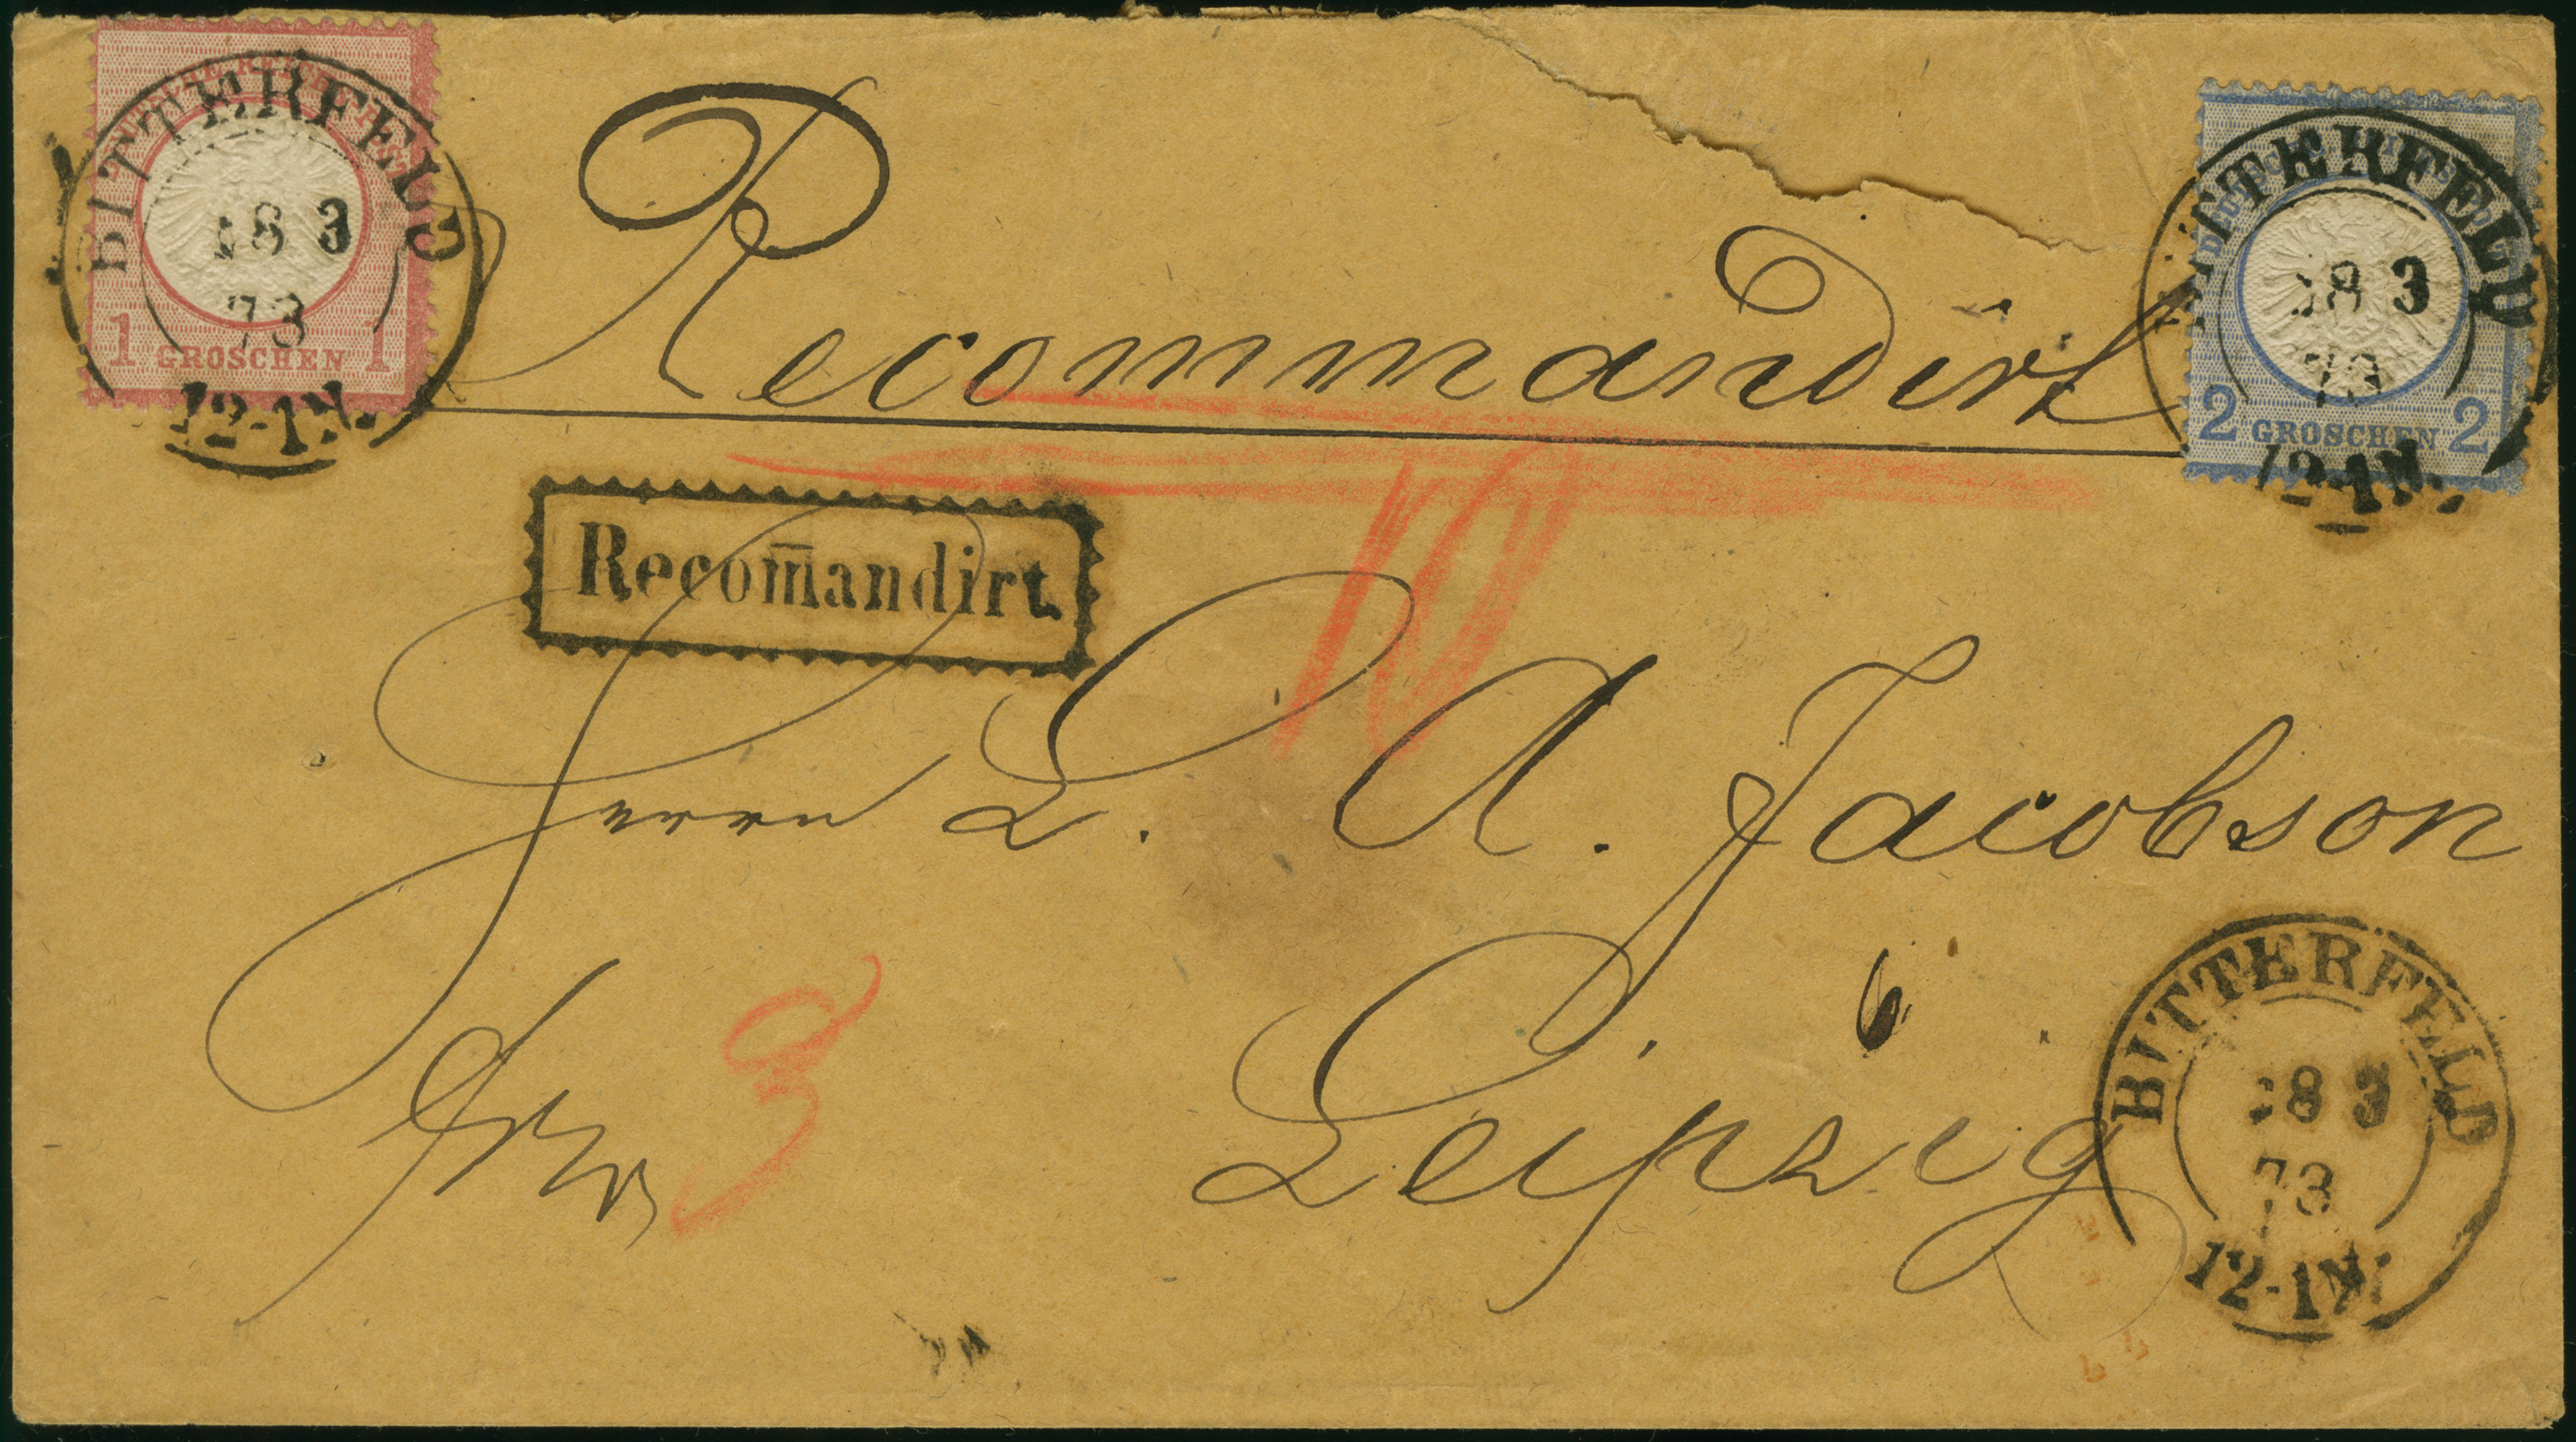 BITTERFELD
18 3
73
12-1N.
1 GROSCHEN 1
Recommandirt
BITTERFELD
18 3
73
12-1N.
2 GROSCHEN 2
Recom̅andirt.
10
Herrn L. A. Jacobson
6
Leipzig
3
BITTERFELD
18 3
73
12-1N.